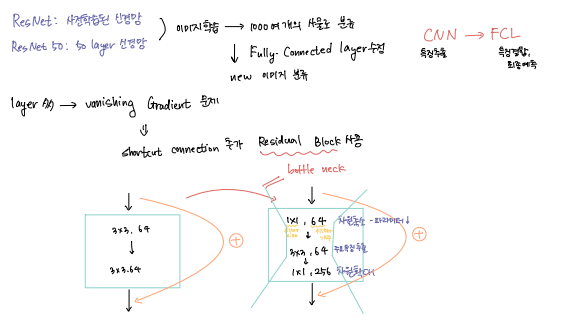 ResNet: 사전학습된 신경망
ResNet 50: 50 layer 신경망
이미지 학습 → 1000여개의 사물로 분류
Fully-Connected layer 수정
new 이미지 분류
CNN → FCL
특징추출
특징결합, 최종예측
layer ↑ → vanishing Gradient 문제
shortcut connection 추가 Residual Block 사용
bottle neck
3x3, 64
3x3.64
+
1x1, 64 차원축소 - 파라미터↓
3x3, 64 주요특징추출
1x1, 256 차원확대
+